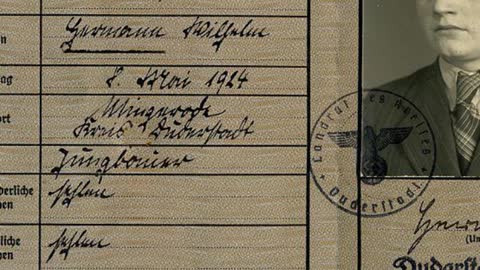 en
Hermann Wilhelm
ag
8. Mai 1924
ort
Mingerode
Kreis Duderstadt
Jungbauer
derliche
hen
fehlen
liche
hen
fehlen
Landrat des Kreises
Duderstadt
Herm
(Un
Duderst